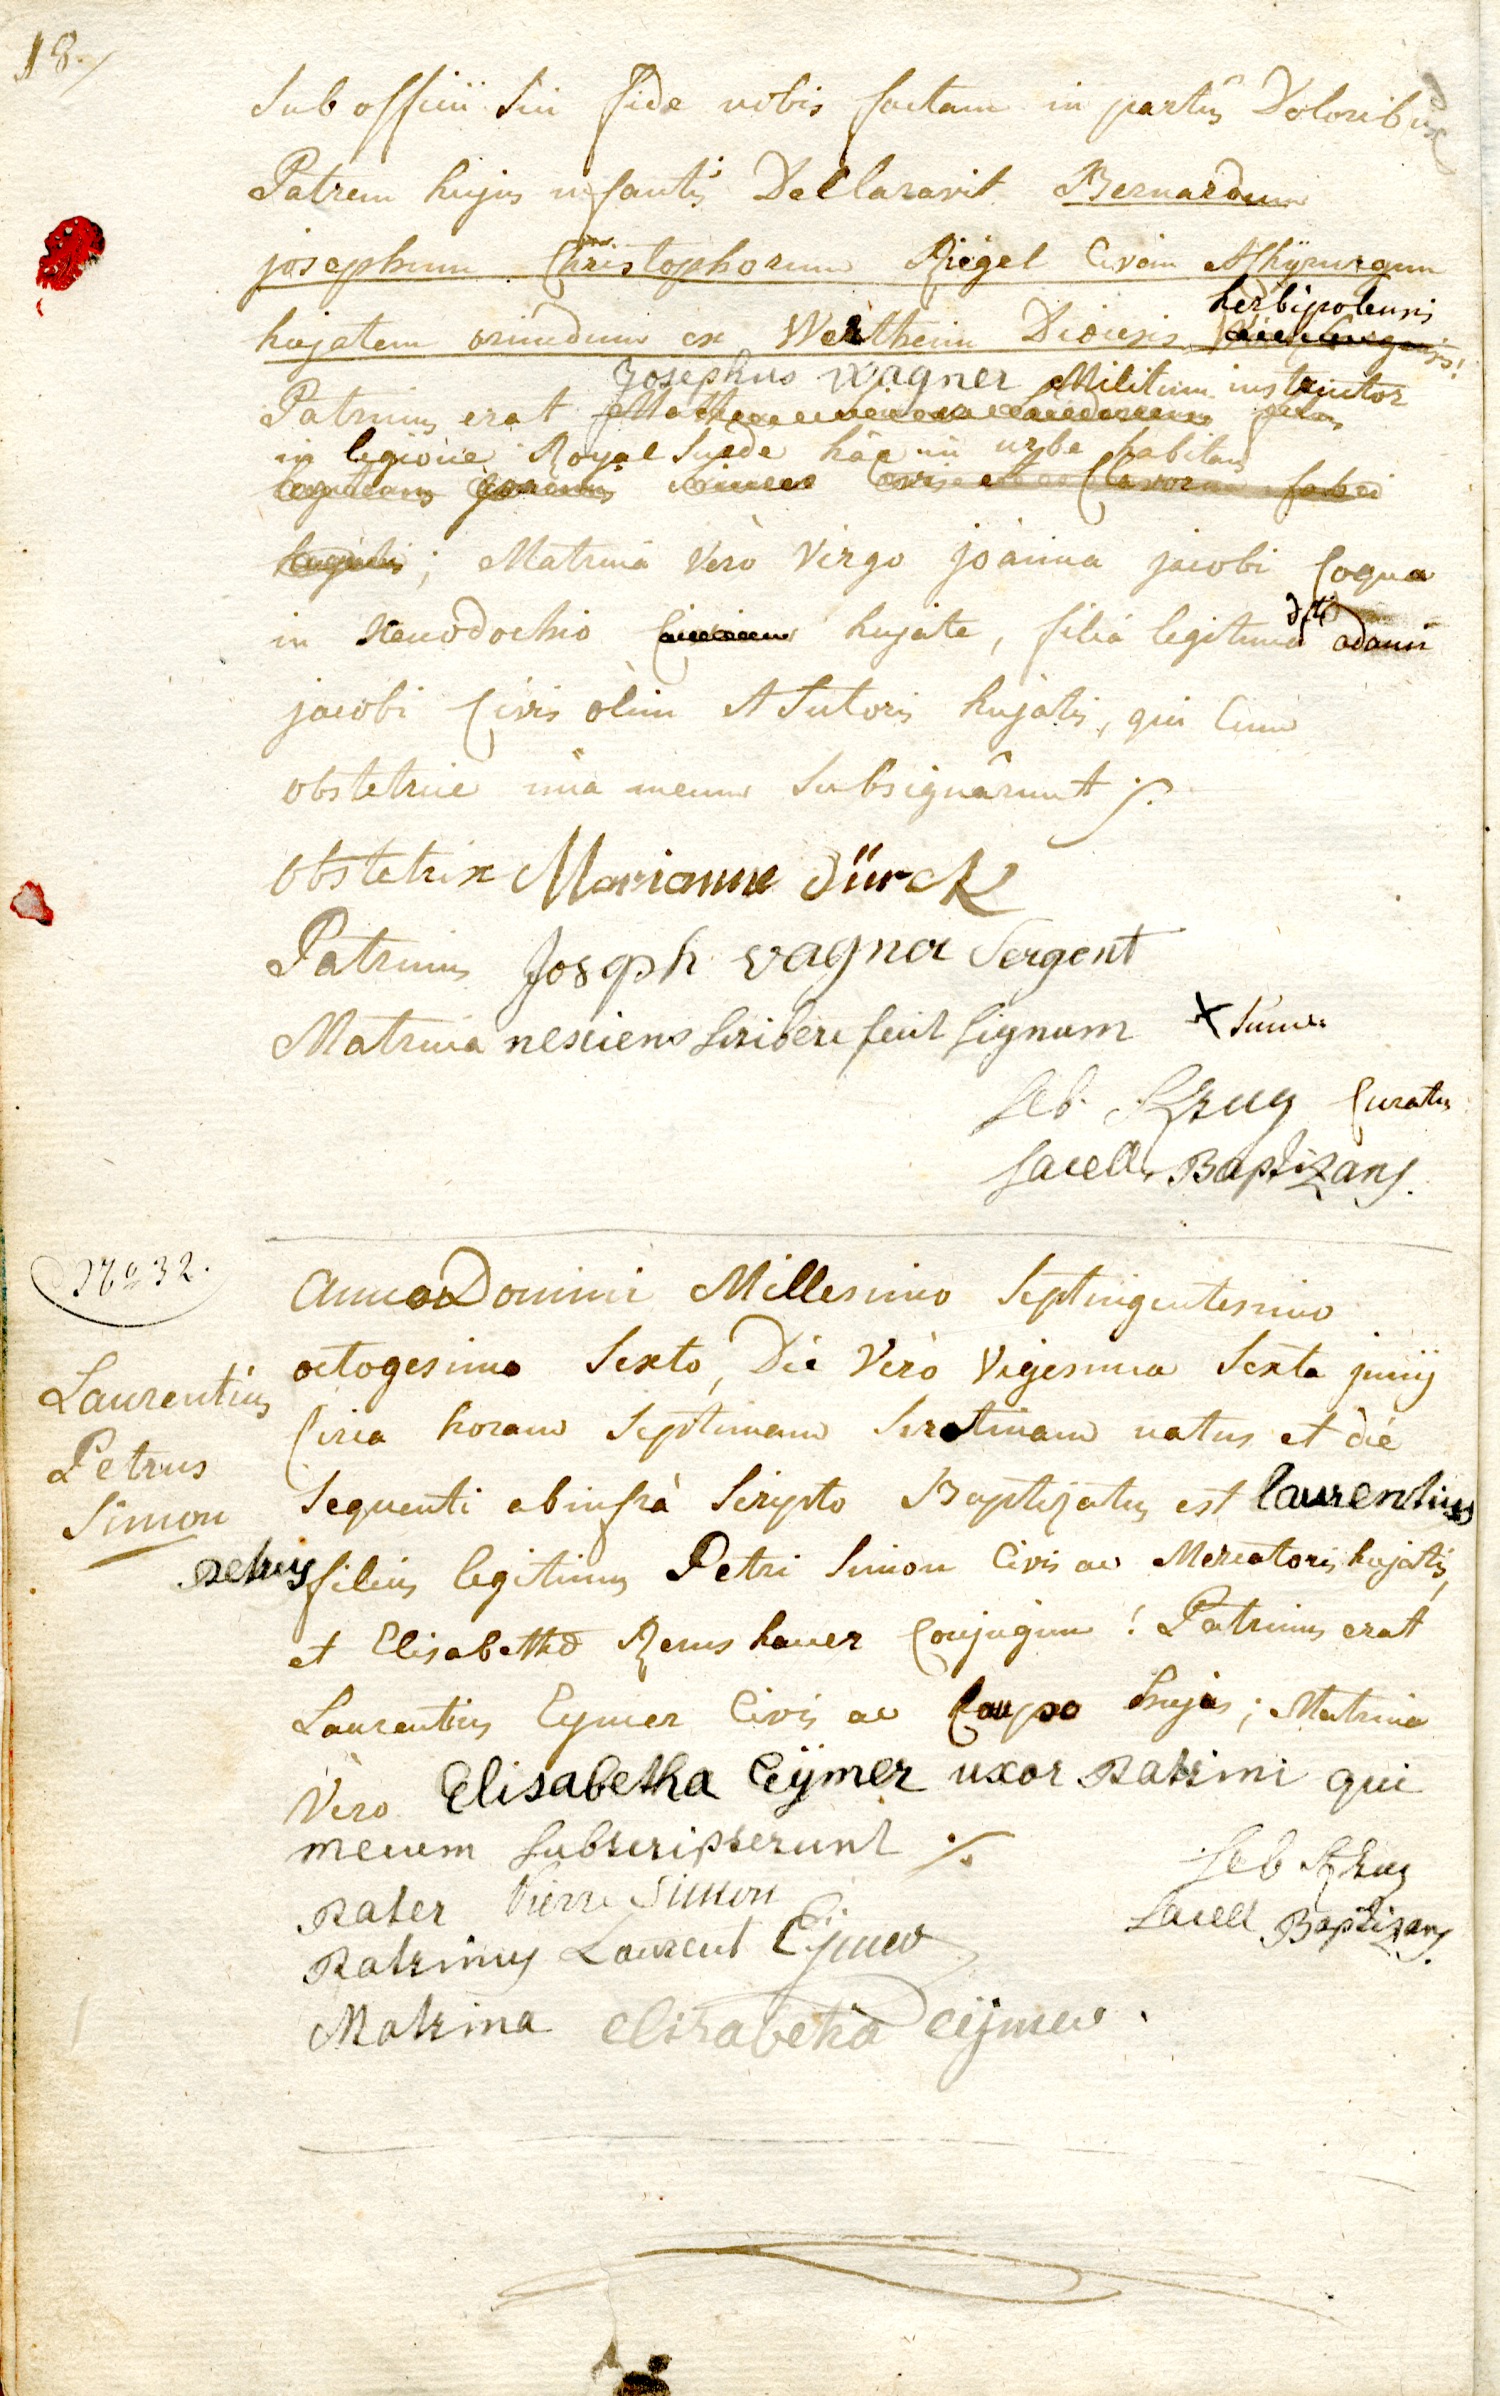 18.
Sub officii sui fide nobis factam in partûs Doloribus
Patrem hujus infantis Declaravit Bernardum
josephum Christophorum Riegel Civem Chÿrurgum
hujatem oriundum ex Wertheim Diocesis herbipolensis
Josephus Wagner Militum instructor
Patrinus erat
in legione Royal Suede hâc in urbe habitans
; Matrina Verò Virgo joánna jacobi Coqua
in Xenodochio hujate, filia legitima dfti adami
jacobi Civis olim et Sutoris hujatis, qui Cum
obstetrice unà mecum Subsignârunt ./.
obstetrix Marianne Dürck
Patrinus Joseph vagner Sergent
Matrina nesciens scribere fecit signum X suum
Seb Krug Curatus
Sacell. Baptizans.
No 32.
Laurentius
Petrus
Simon
Anno Domini Millesimo Septingentesimo
octogesimo Sexto, Die Verò Vigesima Sexta junij
Circa horam Septimam Serotinam natus et die
Sequenti ab infrà Scripto Baptizatus est laurentius
petrus filius legitimus Petri Simon Civis ac Mercatoris hujatis,
et Elisabethæ Remshauer Conjugum ! Patrinus erat
Laurentius Eymer Civis ac Caupo hujas; Matrina
Vero Elisabetha Eÿmer uxor patrini qui
mecum subscripserunt ./.
Seb Krug
Sacell Baptizans.
pater Pierre Simon
patrinus Laurent Eÿmer
Matrina elisabetha eijmer.